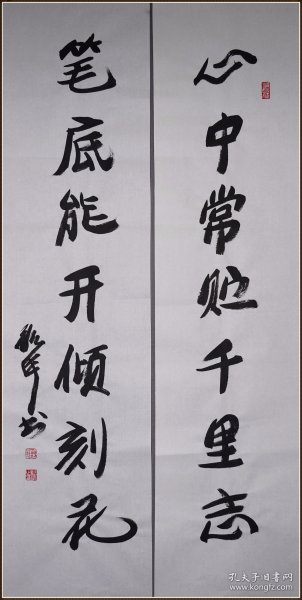 心中常贮千里志
笔底能开倾刻花
书
孔夫子旧书网